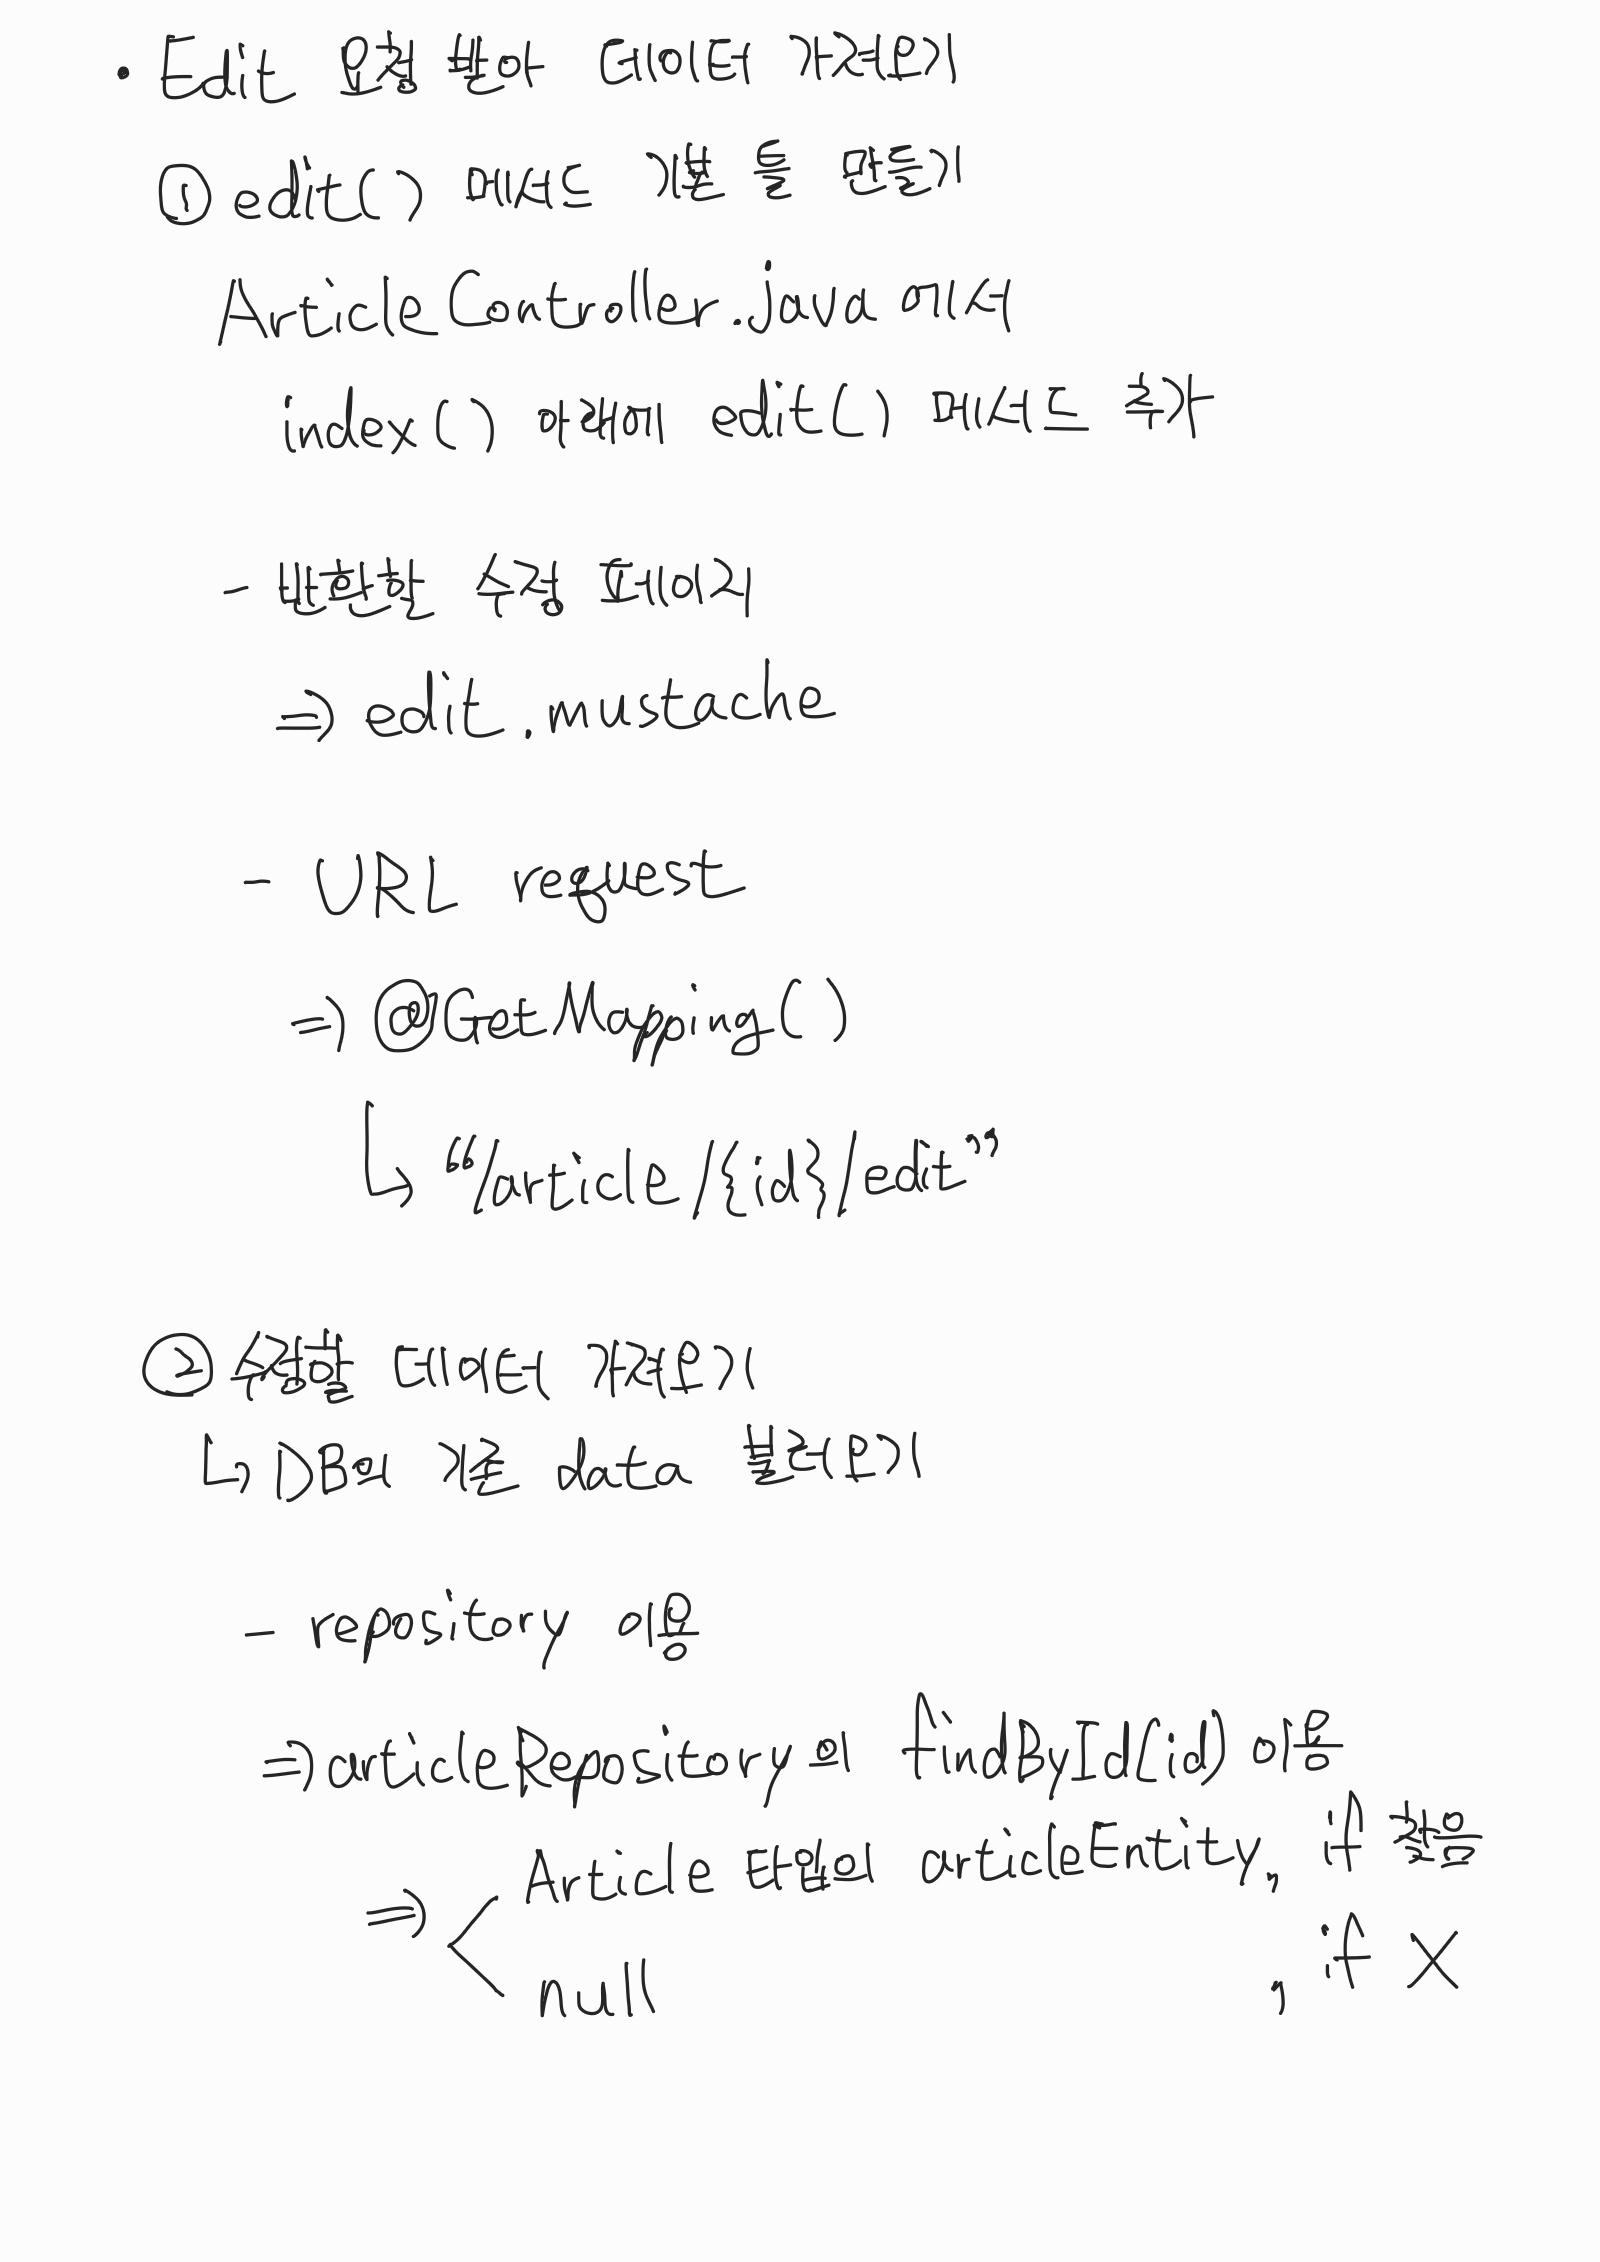 • Edit 요청 받아 데이터 가져오기
① edit() 메서드 기본 틀 만들기
ArticleController.java 에서
index() 아래에 edit() 메서드 추가
- 반환할 수정 페이지
⇒ edit.mustache
- URL request
⇒ @GetMapping()
↳ “/article/{id}/edit”
② 수정할 데이터 가져오기
↳ DB의 기존 data 불러오기
- repository 이용
⇒ articleRepository의 findById(id) 이용
⇒ < Article 타입의 articleEntity, if 찾음
null , if X